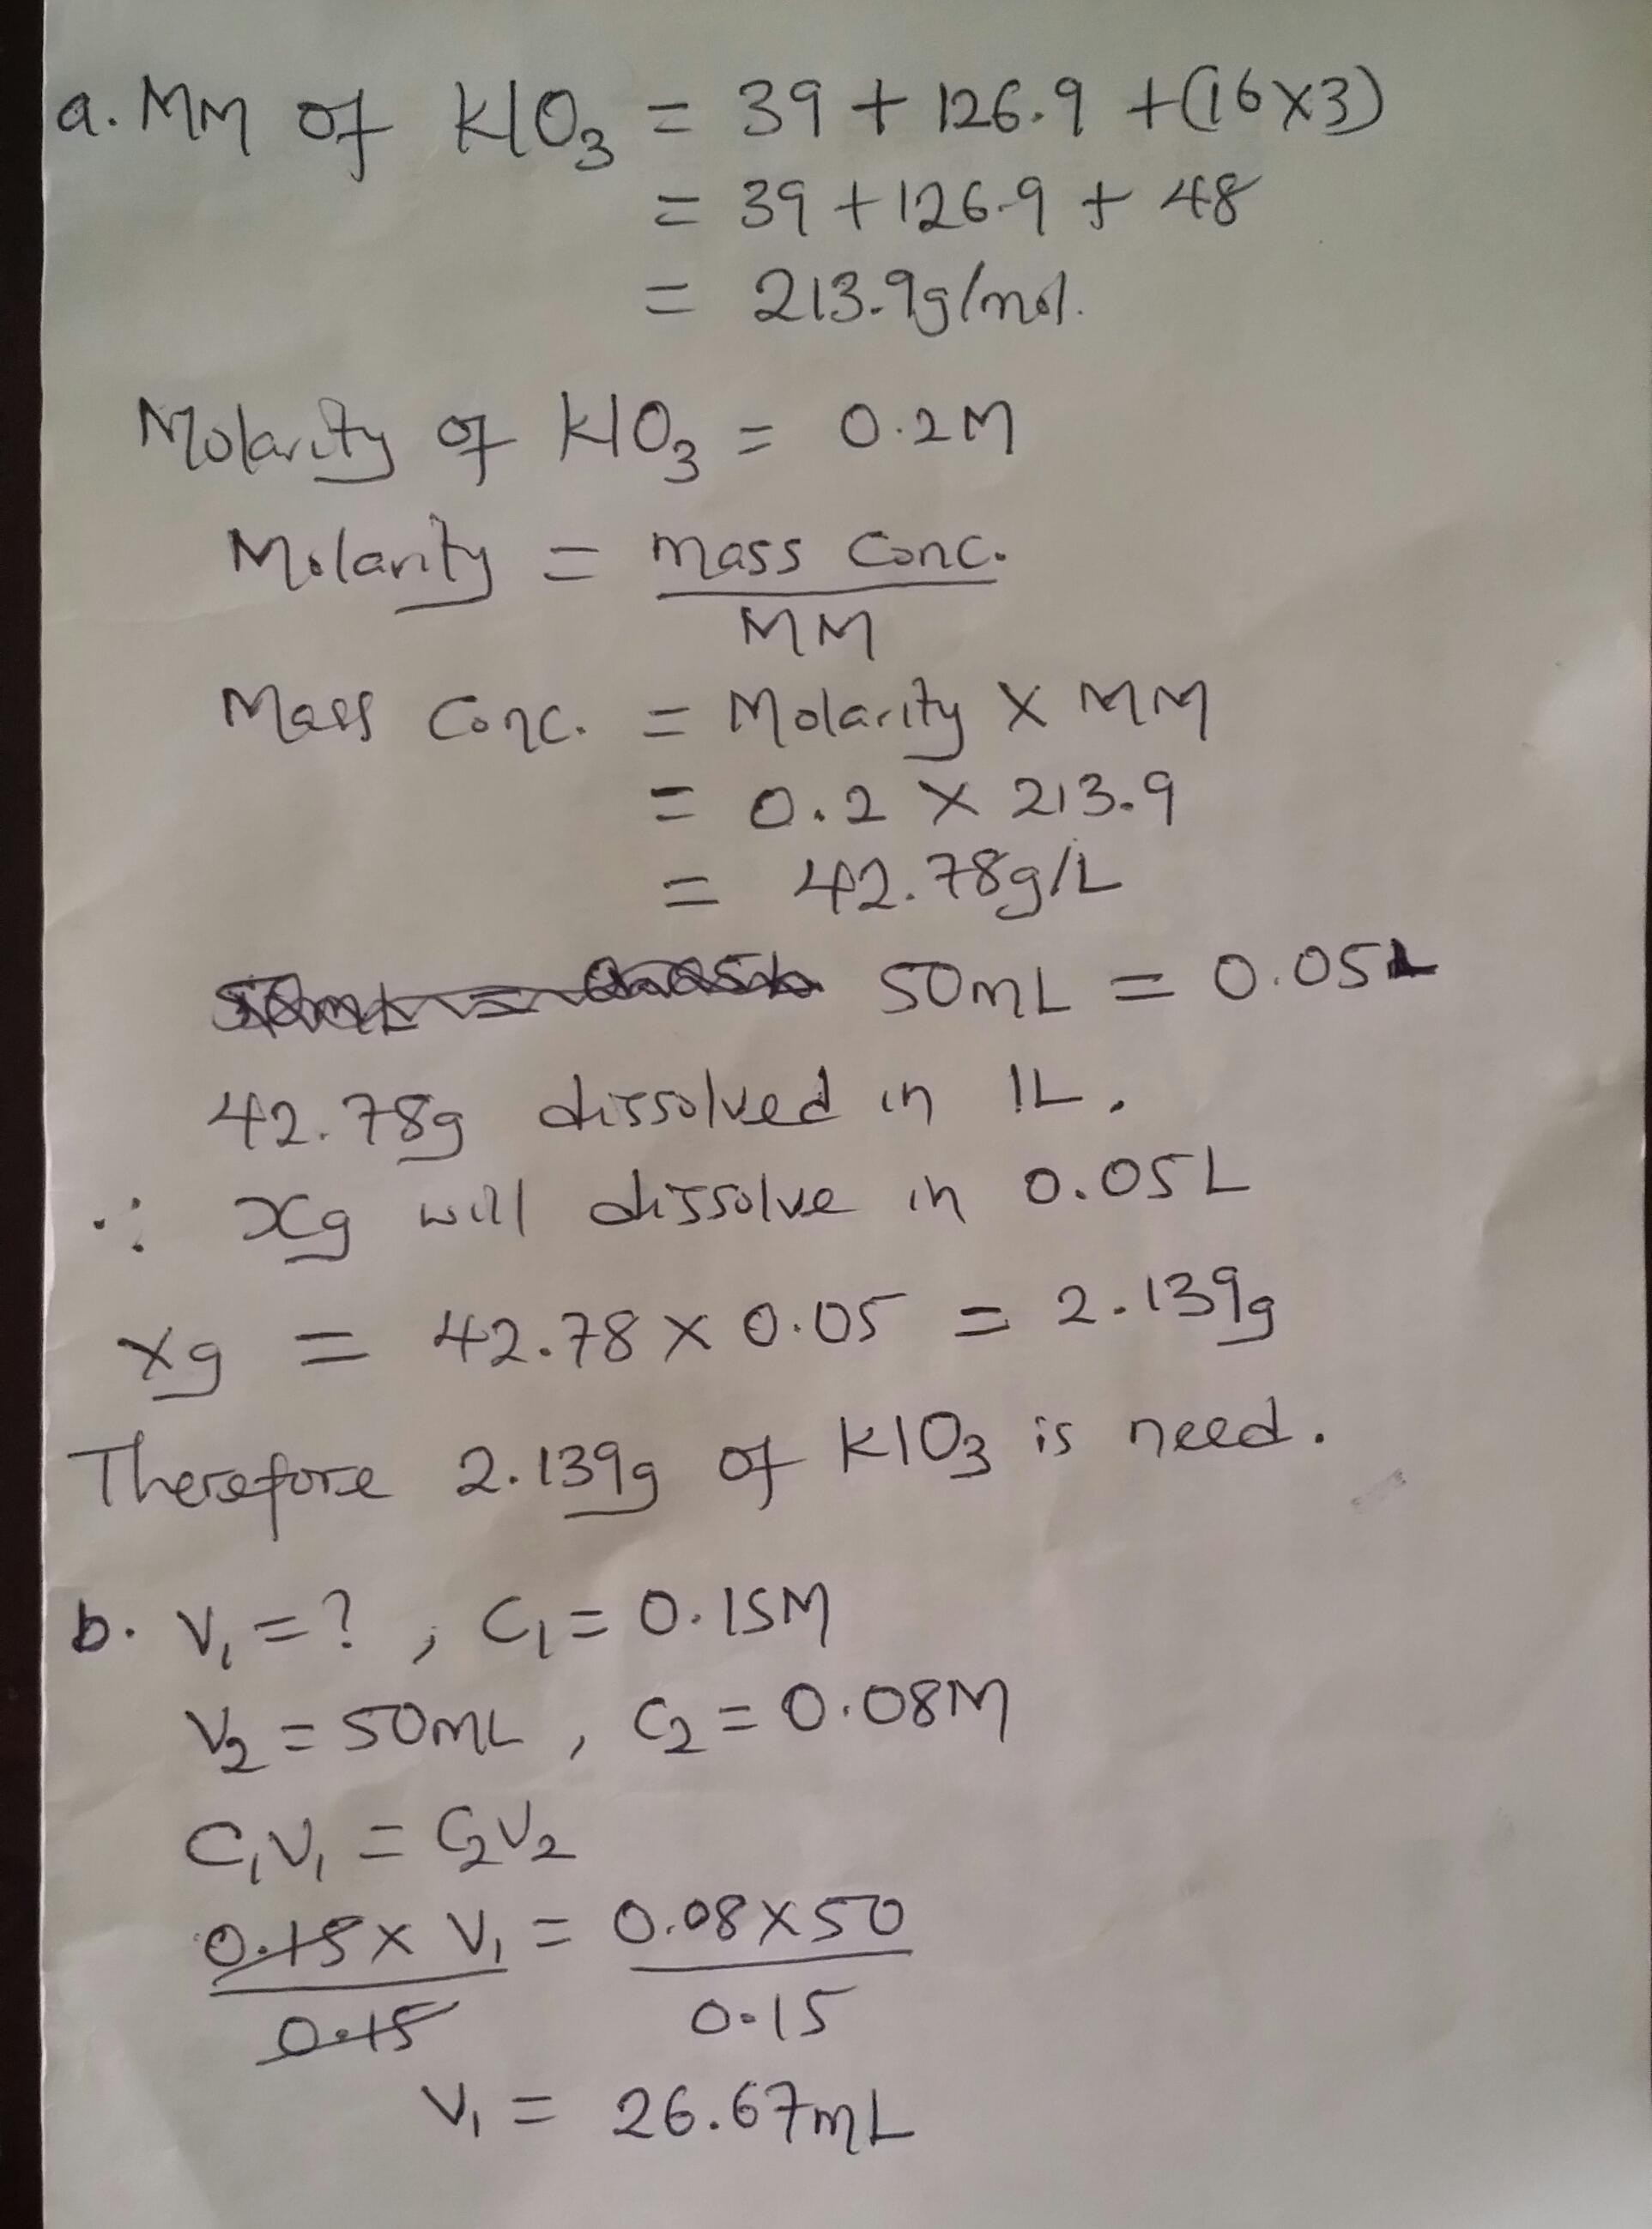 a. MM of KIO3 = 39 + 126.9 + (16x3)
= 39 + 126.9 + 48
= 213.9g/mol.
Molarity of KIO3 = 0.2M
Molarity = mass conc.
MM
Mass conc. = Molarity x MM
= 0.2 x 213.9
= 42.78g/L
50mL = 0.05L 50mL = 0.05L
42.78g dissolved in 1L.
∴ xg will dissolve in 0.05L
xg = 42.78 x 0.05 = 2.139g
Therefore 2.139g of KIO3 is need.
b. V1 = ? , C1 = 0.15M
V2 = 50mL , C2 = 0.08M
C1V1 = C2V2
0.15 x V1 = 0.08x50
0.15 0.15
V1 = 26.67mL